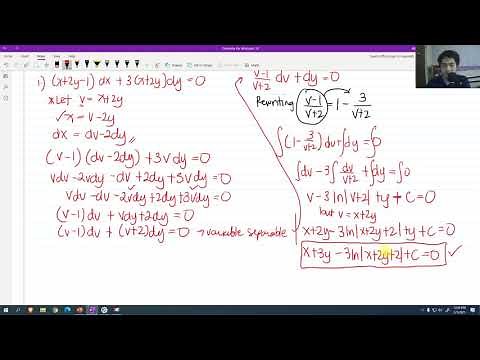 1) (x+2y-1) dx + 3(x+2y)dy = 0
* Let v = x+2y
✓x = v-2y
dx = dv-2dy
(v-1) (dv-2dy) + 3vdy = 0
vdv-2vdy - dv + 2dy + 3vdy = 0
vdv - dv - 2vdy + 2dy + 3vdy = 0
(v-1)dv + vdy + 2dy = 0
(v-1)dv + (v+2)dy = 0 → variable separable
v-1/v+2 dv + dy = 0
Rewriting v-1/v+2 = 1 - 3/v+2
∫(1 - 3/v+2)dv + ∫dy = ∫0
∫dv - 3∫dv/v+2 + ∫dy = ∫0
v - 3 ln|v+2| + y + C = 0
but v = x+2y
x+2y - 3ln|x+2y+2| + y + C = 0
x+3y - 3ln|x+2y+2| + C = 0 ✓